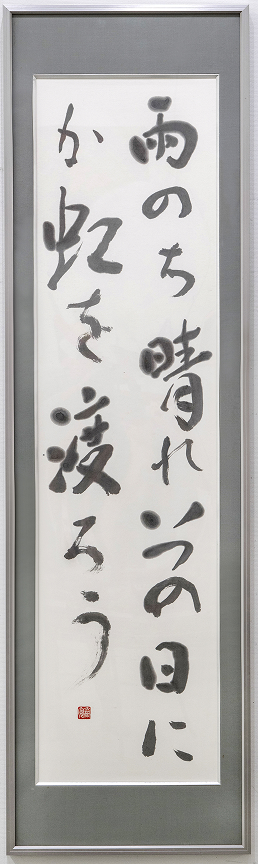 雨のち晴れいつの日に
か虹を渡ろう